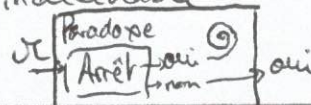 Paradoxe
Arrêt
oui
non
oui